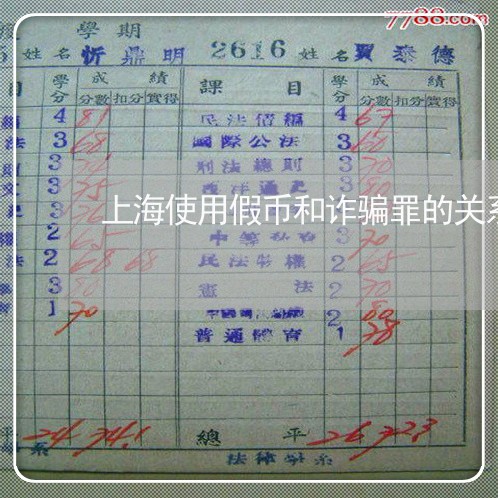 7788.com
學期
姓名 忻鼎明 2616 姓名 賈泰德
目 學分 成績 課目 學分 成績
分數 扣分 實得 分數 扣分 實得
4 81 民法債編 4 67
法 3 68 國際公法 3 60
3 刑法總則 3 70
3 75 西洋通史 3 80
上海使用假币和诈骗罪的关系
2 65 3 70
法 2 68 68 民法物權 2 65
3 80 憲法 2 70
1 70 2 80
普通體育 1 78
平 24 74.1 總平 26 72.3
系 法律學系